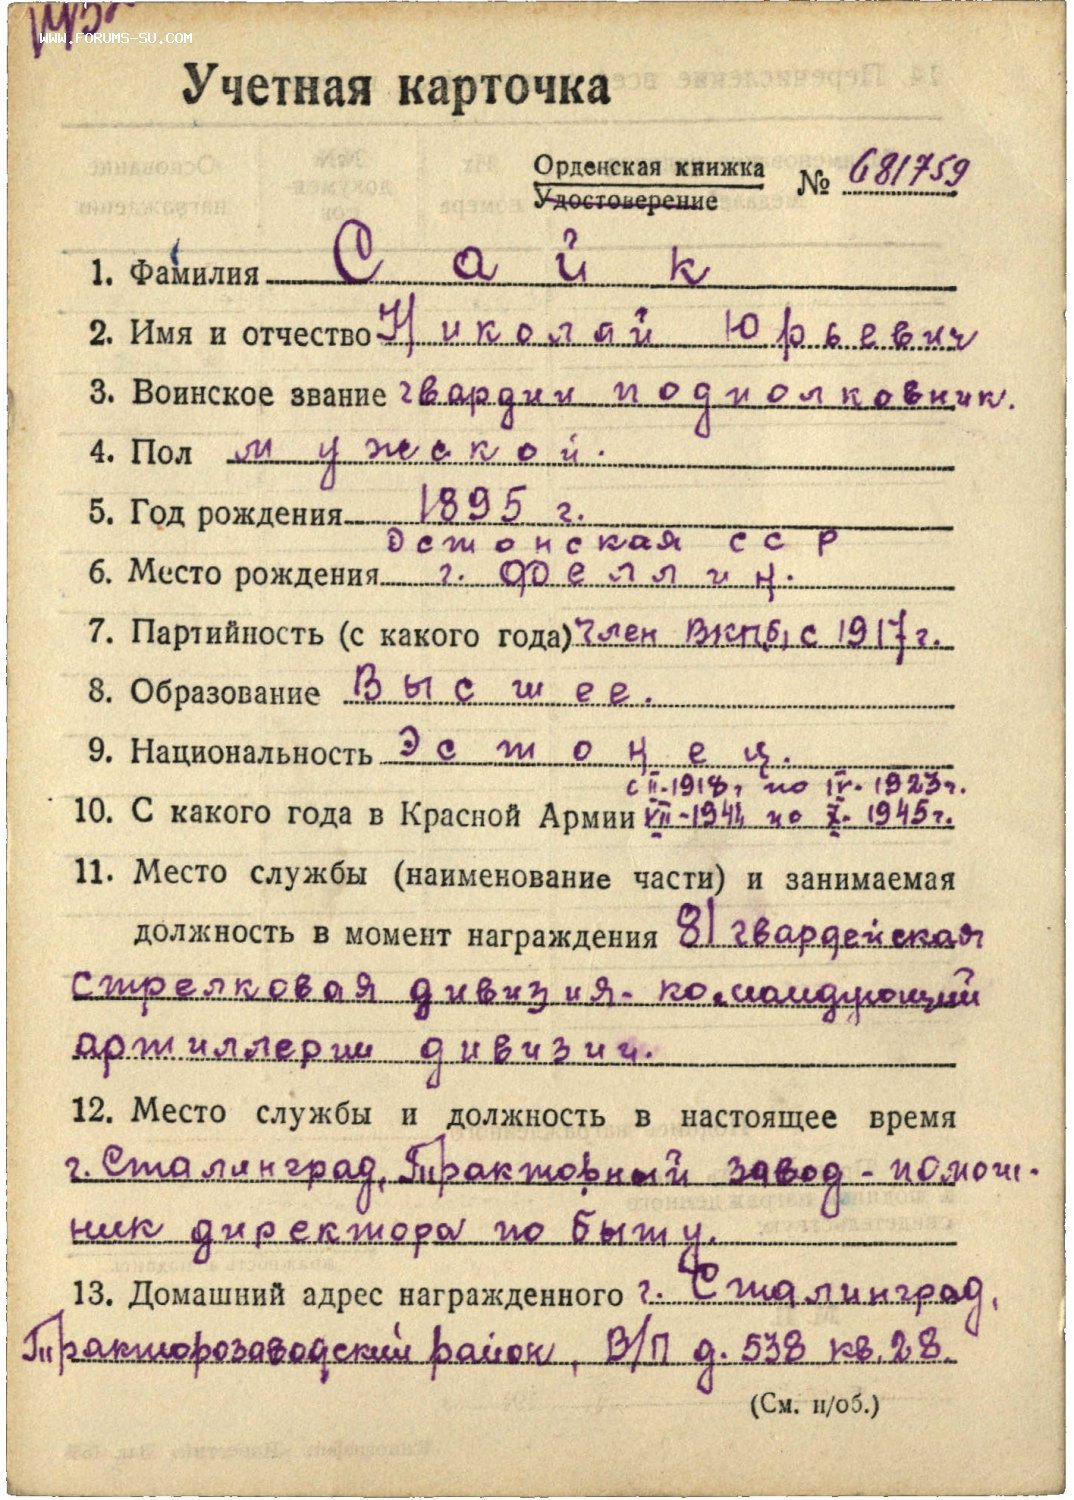 WWW.FORUMS-SU.COM
Учетная карточка
Орденская книжка
Удостоверение
№ 681759
1. Фамилия Сайк
2. Имя и отчество Николай Юрьевич
3. Воинское звание гвардии подполковник.
4. Пол мужской.
5. Год рождения 1895 г.
Эстонская ССР
6. Место рождения г. Феллин.
7. Партийность (с какого года) Член ВКП(б) с 1917 г.
8. Образование Высшее.
9. Национальность Эстонец.
с II-1918г по IV-1923г.
10. С какого года в Красной Армии VII-1941 по X-1945г.
11. Место службы (наименование части) и занимаемая
должность в момент награждения 81 гвардейская
стрелковая дивизия - командующий
артиллерии дивизии.
12. Место службы и должность в настоящее время
г. Сталинград, Тракторный завод - помощ-
ник директора по быту.
13. Домашний адрес награжденного г. Сталинград,
Тракторозаводский район, В/П д. 538 кв. 28.
(См. н/об.)